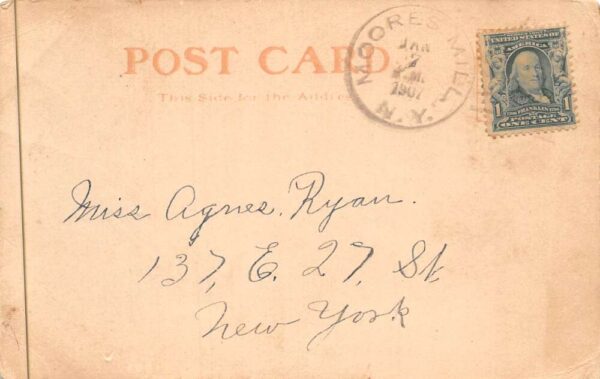 POST CARD.
This Side for the Address
MOORES MILL, N.Y.
JAN
1907
UNITED STATES OF
AMERICA
1 FRANKLIN 1
POSTAGE
ONE CENT
Miss Agnes. Ryan.
137, E. 27, St.
New York